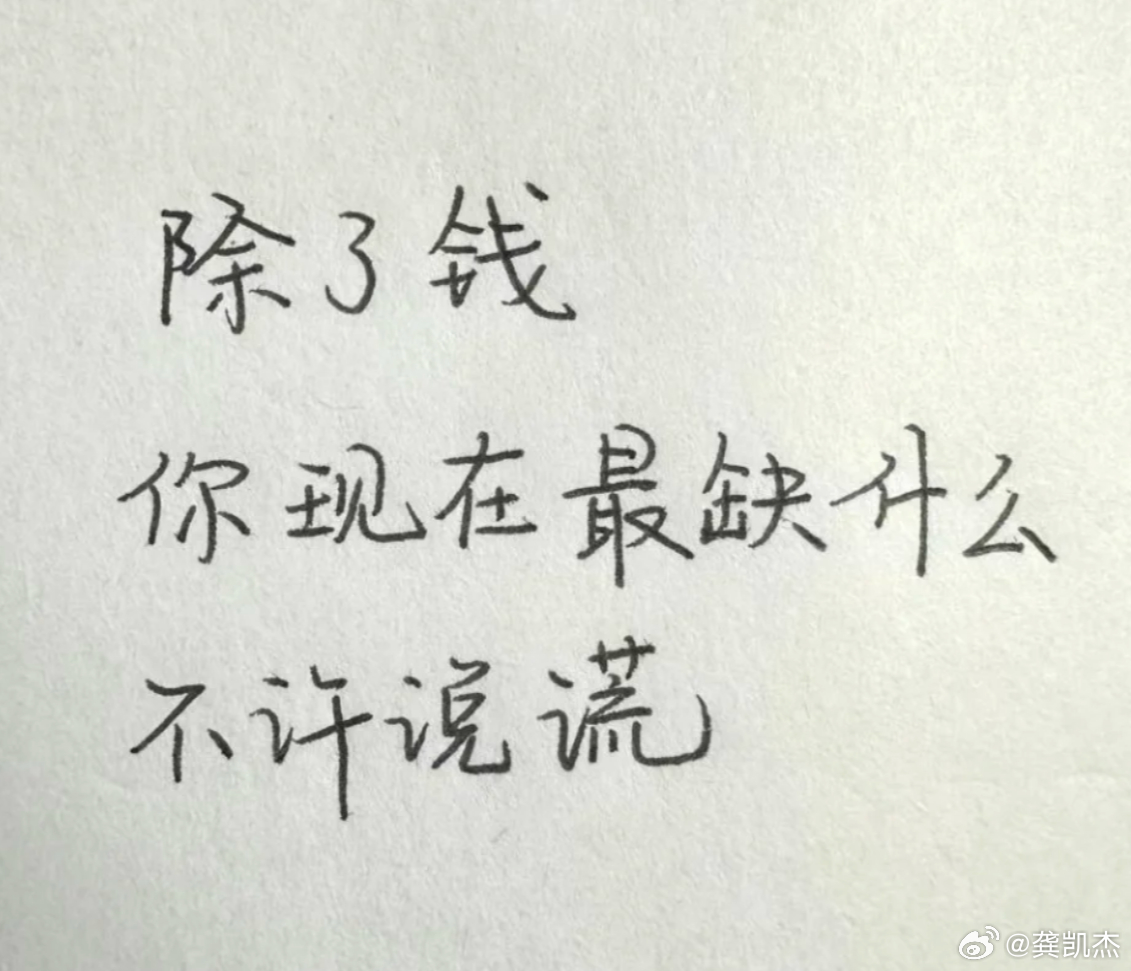 除了钱
你现在最缺什么
不许说谎
@龚凯杰